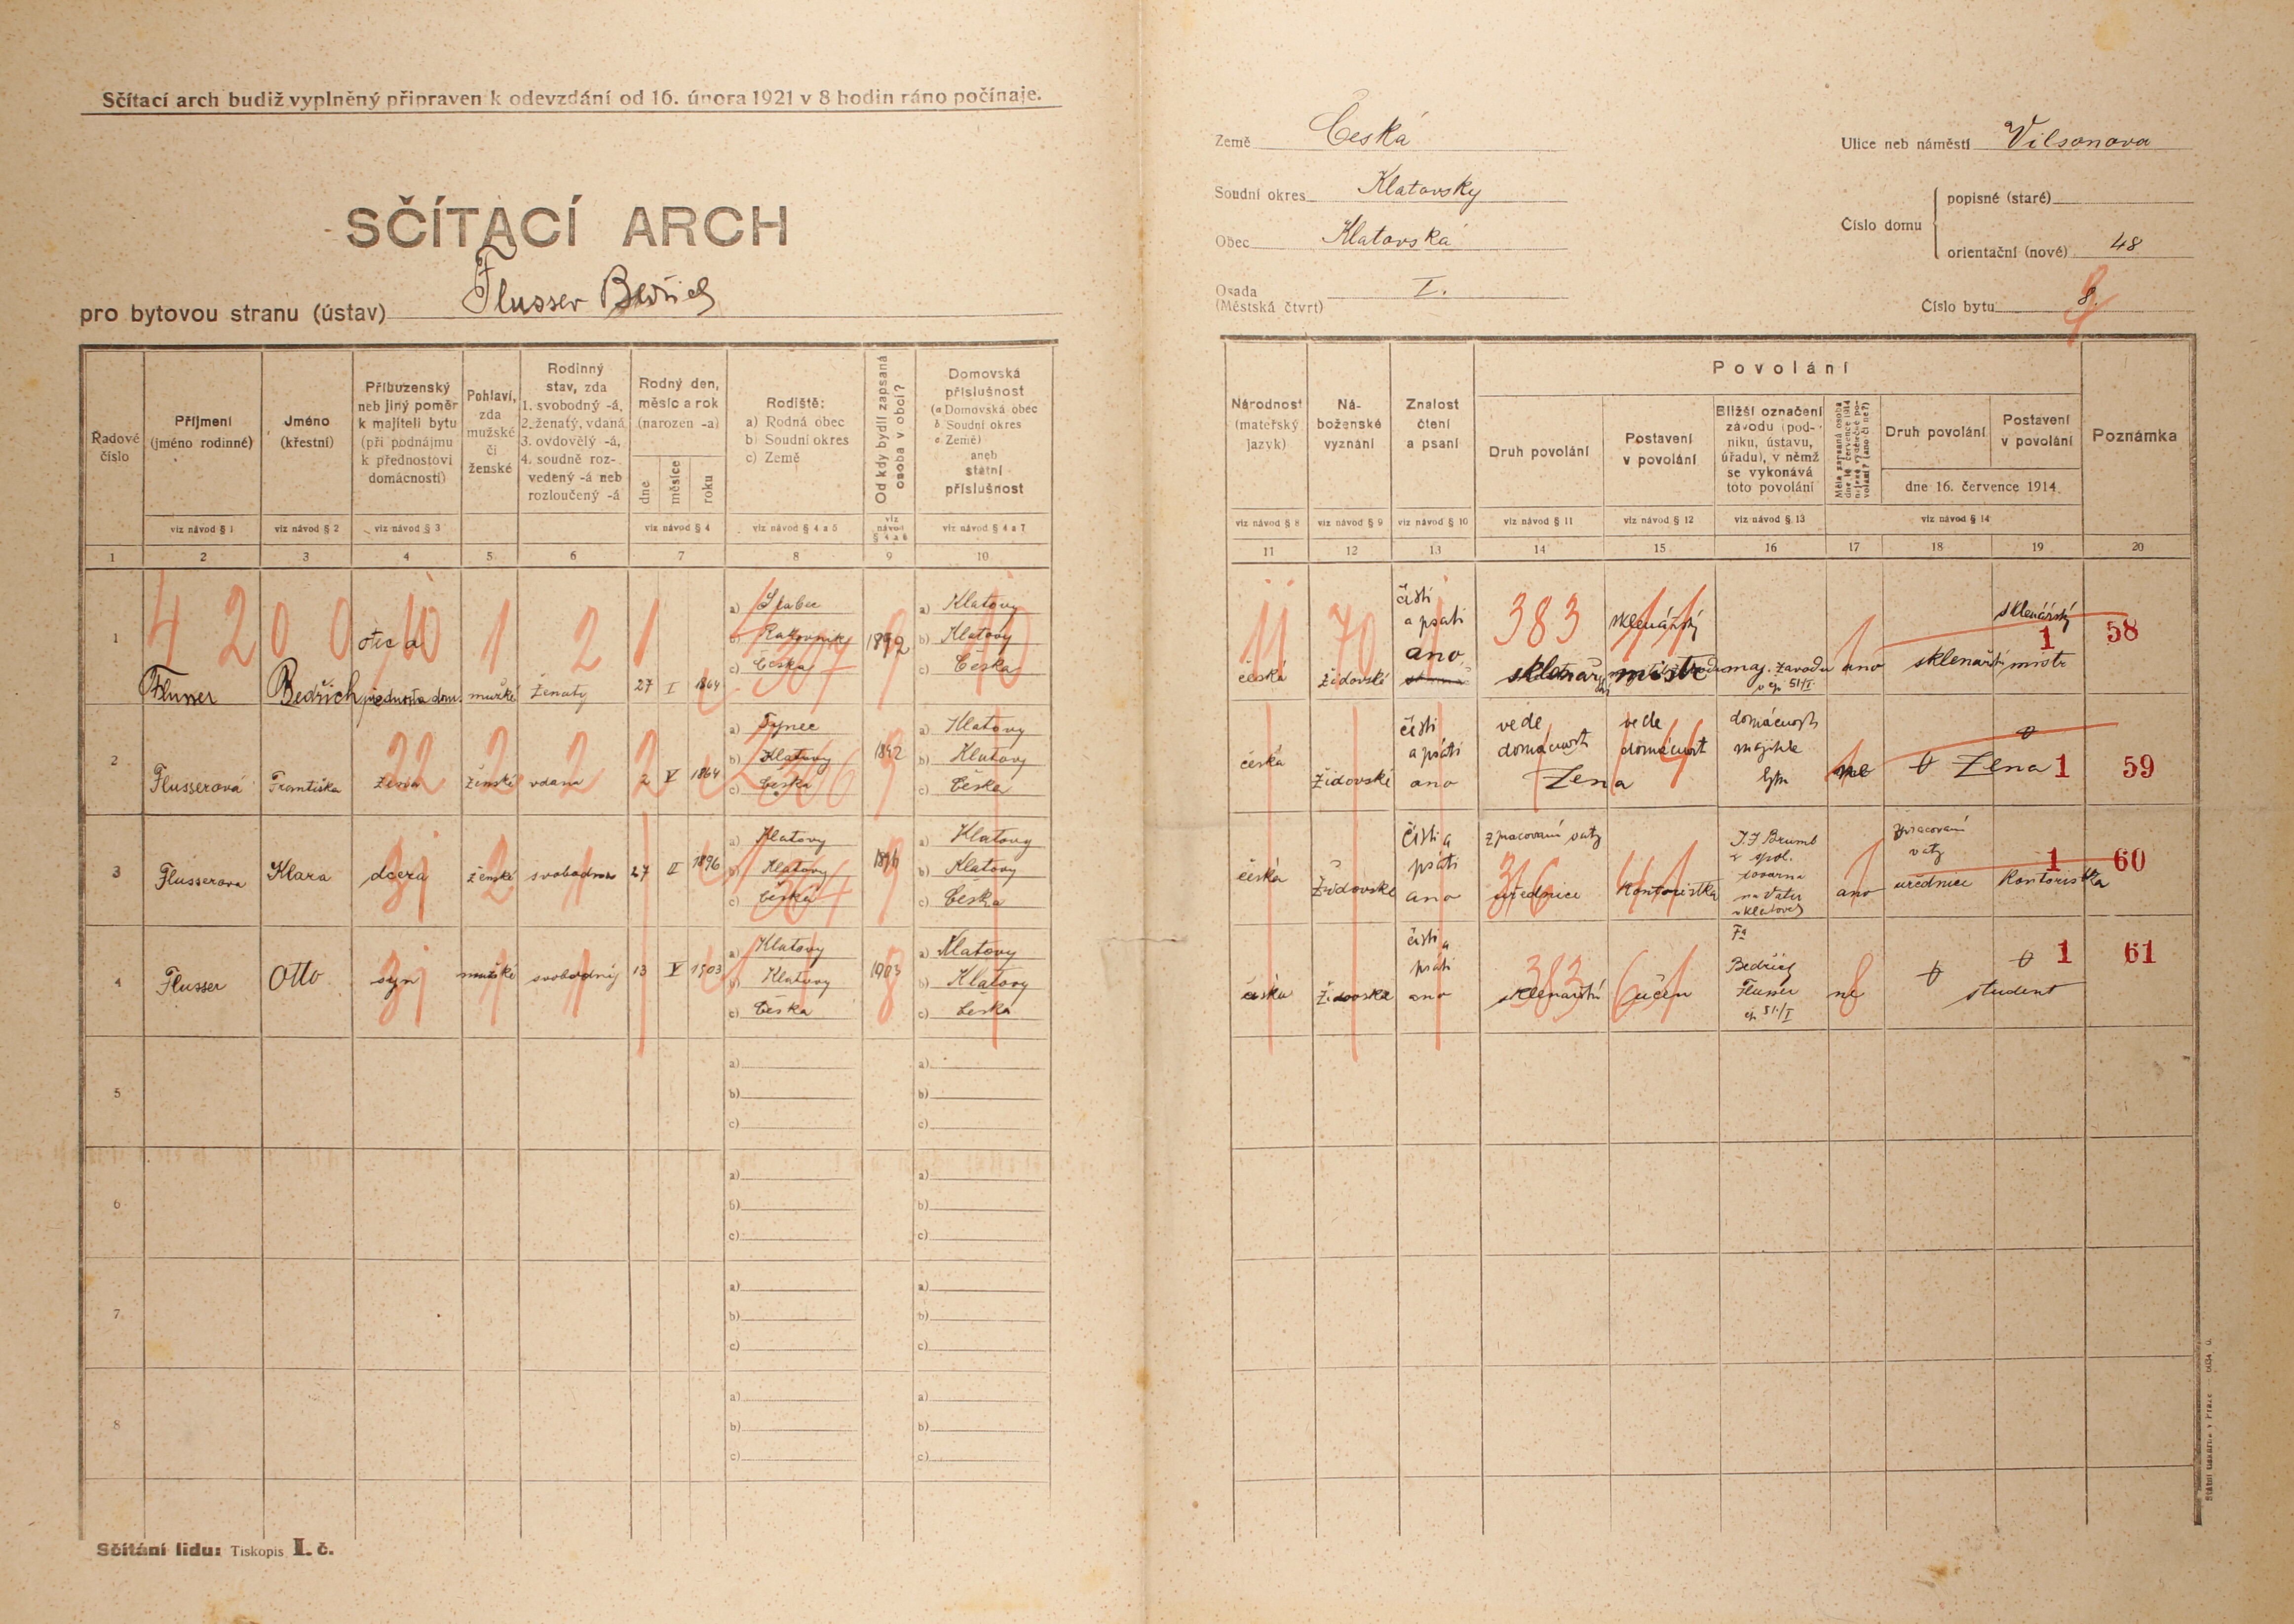 Sčítací arch budiž vyplněný připraven k odevzdání od 16. února 1921 v 8 hodin ráno počínaje.
SČÍTACÍ ARCH
pro bytovou stranu (ústav) Flusser Bedřich
Země Česká
Soudní okres Klatovsky
Obec Klatovská
Osada I.
(Městská čtvrt)
Ulice neb náměstí Vilsonova
Číslo domu
popisné (staré)
orientační (nové) 48
Číslo bytu 8.
Řadové číslo
Příjmení (jméno rodinné)
viz návod § 1
Jméno (křestní)
viz návod § 2
Příbuzenský neb jiný poměr k majiteli bytu (při podnájmu k přednostovi domácnosti)
viz návod § 3
Pohlaví, zda mužské či ženské
Rodinný stav, zda
1. svobodný -á,
2. ženatý, vdaná
3. ovdovělý -á,
4. soudně rozvedený -á neb rozloučený -á
Rodný den, měsíc a rok (narozen -a)
dne
měsíce
roku
viz návod § 4
Rodiště:
a) Rodná obec
b) Soudní okres
c) Země
viz návod § 4 a 5
Od kdy bydlí zapsaná osoba v obci?
viz návod § 4 a 6
Domovská příslušnost
(a Domovská obec
b. Soudní okres
c. Země)
aneb státní příslušnost
viz návod § 4 a 7
Národnost (mateřský jazyk)
viz návod § 8
Náboženské vyznání
viz návod § 9
Znalost čtení a psaní
viz návod § 10
Povolání
Druh povolání
viz návod § 11
Postavení v povolání
viz návod § 12
Bližší označení závodu (podniku, ústavu, úřadu), v němž se vykonává toto povolání
viz návod § 13
Měla zapsaná osoba dne 16. července 1914 nějaké výdělečné povolání? (ano či ne?)
Druh povolání
Postavení v povolání
dne 16. července 1914
viz návod § 14
Poznámka
1 2 3 4 5 6 7 8 9 10
11 12 13 14 15 16 17 18 19 20
4 2 0 0
1 Flusser Bedřich otec a přednosta dom. mužské ženatý 27 I 1864
a) Slabec
b) Rakovník
c) Česka
1892
a) Klatovy
b) Klatovy
c) Česka
česká židovské
čísti
a psati
ano
383
sklenářský mistr
maj. závodu
čp 51/I
ano
sklenářský
mistr
1
58
2 Flusserová Františka žena ženské vdana 2 V 1864
a) Týnec
b) Klatovy
c) Česka
1892
a) Klatovy
b) Klatovy
c) Česka
česká židovské
čísti
a psáti
ano
vede
domácnost
vede
domácnost
Žena
domácnost
majitele
bytu
ne
0 Žena 1
59
3 Flusserova Klara dcera ženské svobodna 27 II 1896
a) Klatovy
b) Klatovy
c) Česká
1896
a) Klatovy
b) Klatovy
c) Česka
česká židovské
čísti a
psáti
ano
zpracovaní vaty
úřednice
kontoristka
na vatu
v Klatovech
ano
zpracovaní
vaty
uřednice kontoristka
1
60
4 Flusser Otto syn mužské svobodný 13 V 1903
a) Klatovy
b) Klatovy
c) Česka
1903
a) Klatovy
b) Klatovy
c) Česka
česka židovské
čísti a
psáti
ano
383
sklenařství
učen
Fa
Bedřich
Flusser
čp. 51/I
ne
0 0 1
student
61
5
a)
b)
c)
a)
b)
c)
6
a)
b)
c)
a)
b)
c)
7
a)
b)
c)
a)
b)
c)
8
a)
b)
c)
a)
b)
c)
Sčítání lidu: Tiskopis I. č.